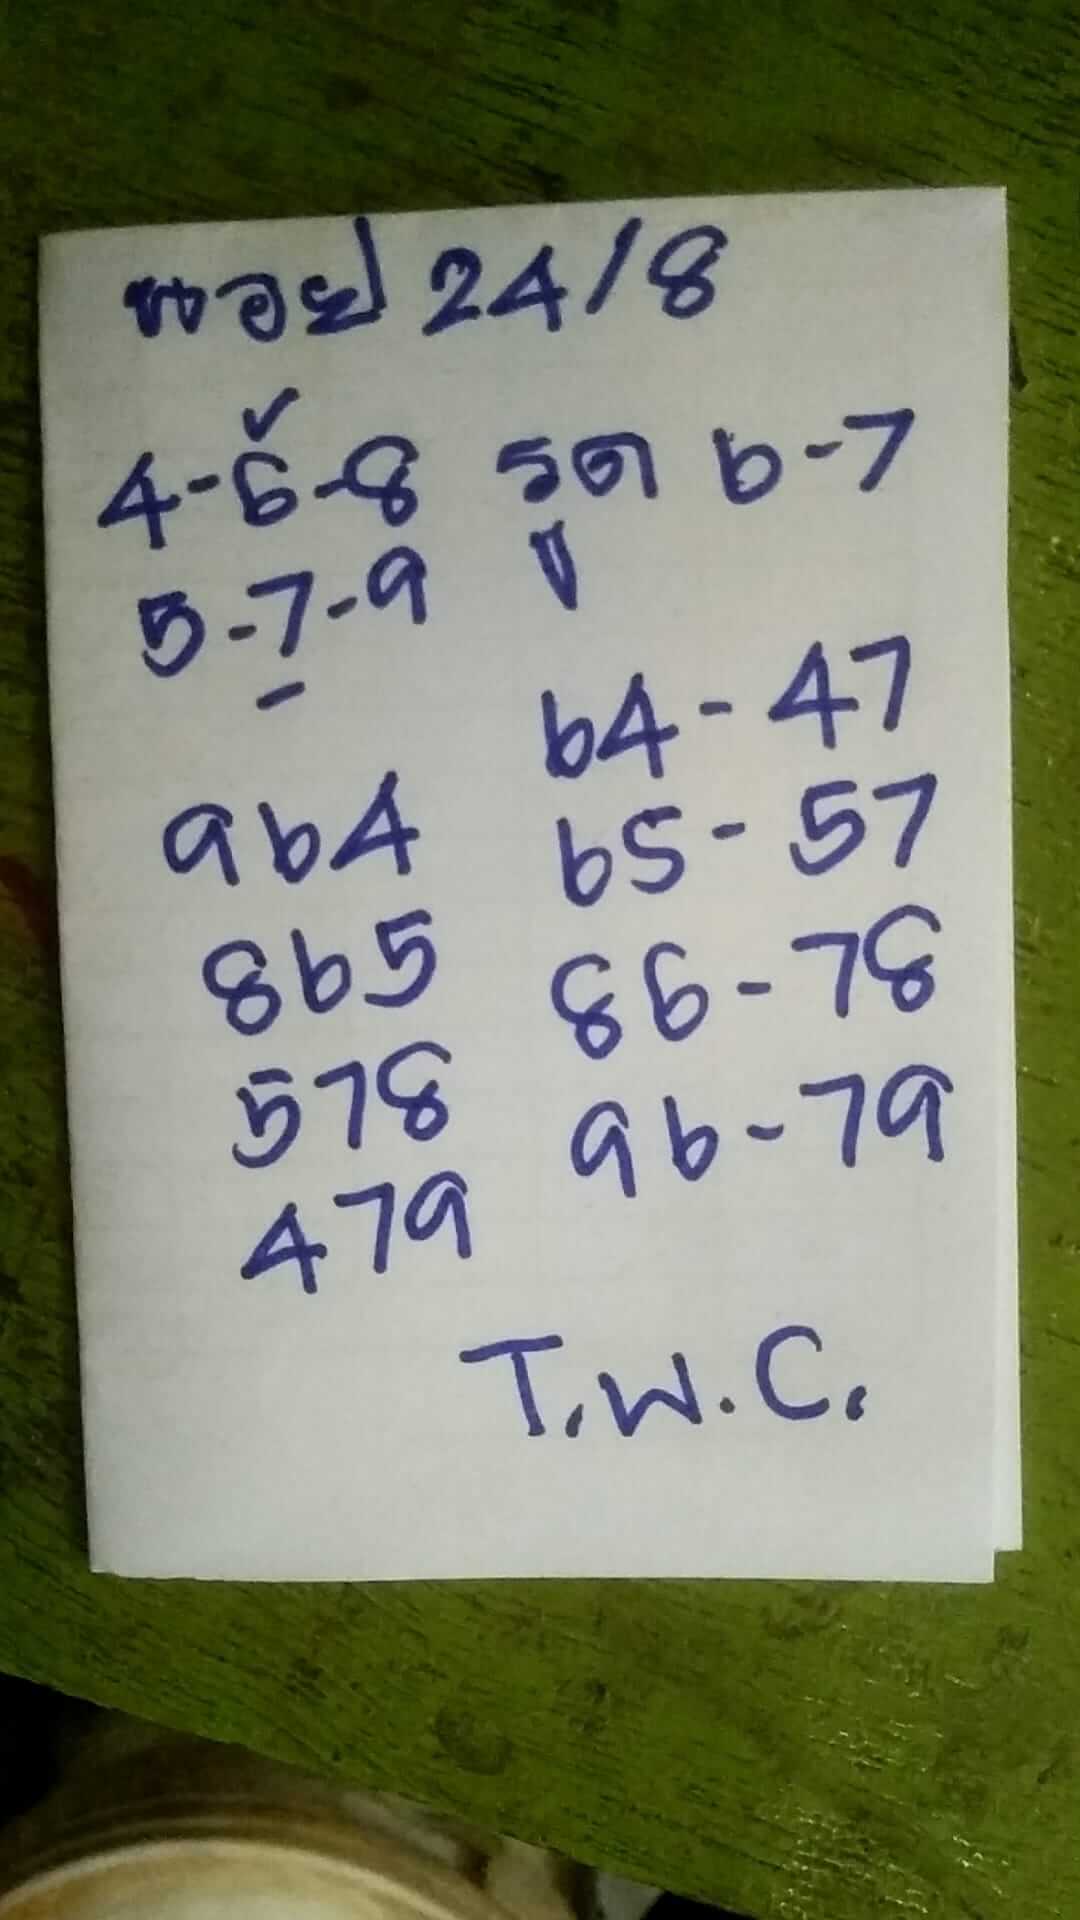 ฮอย 24/8
4-6-8 รูด 6-7
5-7-9
64-47
964 65-57
865 86-78
578 96-79
479
T.W.C.